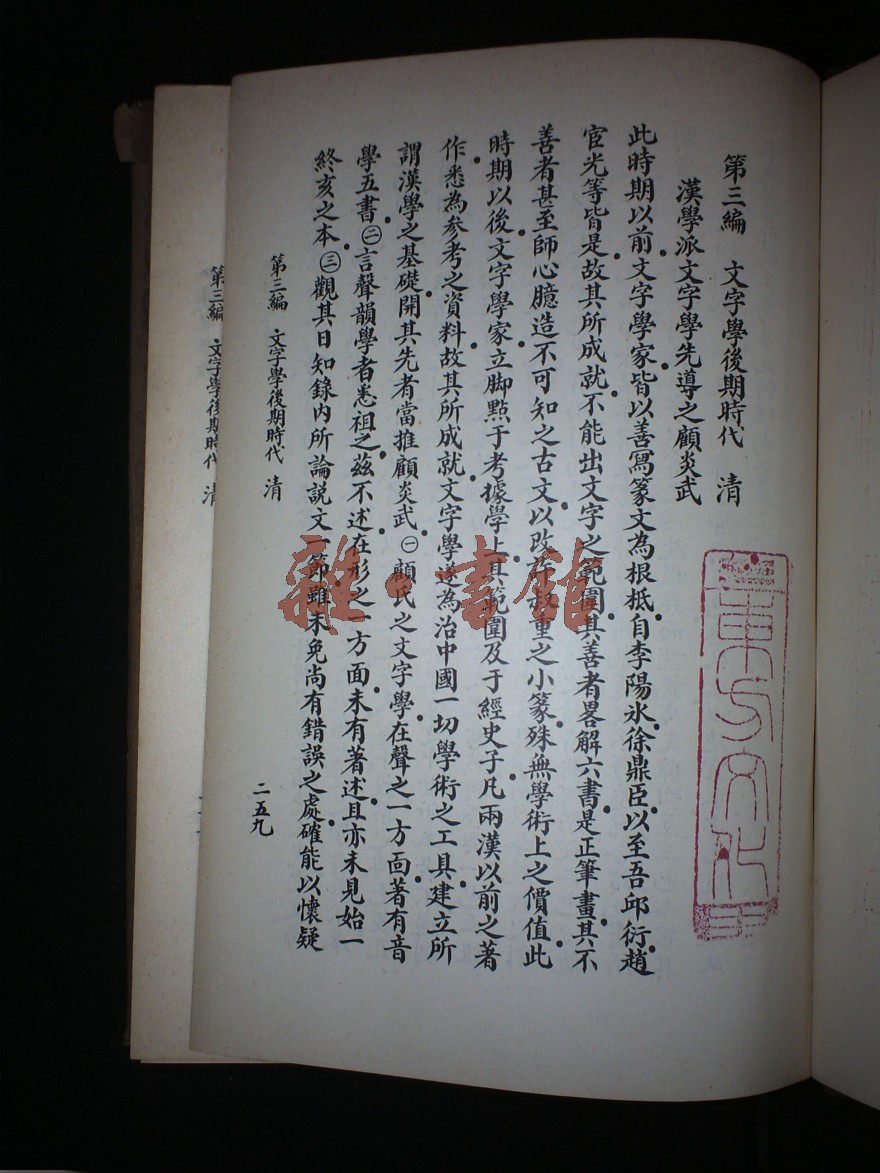 第三編　文字學後期時代　清
漢學派文字學先導之顧炎武
此時期以前文字學家皆以善寫篆文為根柢自李陽冰徐鼎臣以至吾邱衍趙
宧光等皆是故其所成就不能出文字之範圍其善者畧解六書是正筆畫其不
善者甚至師心臆造不可知之古文以改許叔重之小篆殊無學術上之價值此
時期以後文字學家立脚點于考據學上其範圍及于經史子凡兩漢以前之著
作悉為參考之資料故其所成就文字學遂為治中國一切學術之工具建立所
謂漢學之基礎開其先者當推顧炎武㊀顧氏之文字學在聲之一方面著有音
學五書㊁言聲韻學者悉祖之茲不述在形之一方面未有著述且亦未見始一
終亥之本㊂觀其日知錄內所論說文一節雖未免尚有錯誤之處確能以懷疑
第三編　文字學後期時代　清
二五九
第三編　文字學後期時代　清
雜·書館
東方文化